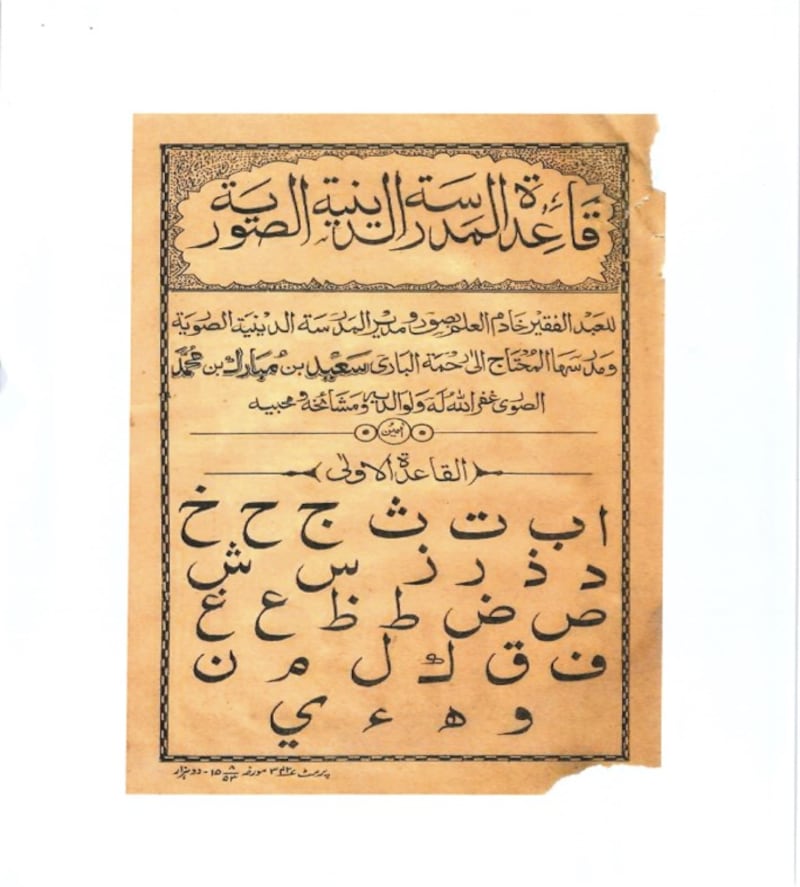 قَاعِدَة المدرسة الدينية الصورية
للعبد الفقير خادم العلم بصور ومدير المدرسة الدينية الصورية
ومدرسها المحتاج الى رحمة البارى سَعِيد بن مُبارك بن محمَّد
الصورى غفر الله له ولوالديه ومشائخه ومحبيه
امين
القاعدة الاولى
ا ب ت ث ج ح خ
د ذ ر ز س ش
ص ض ط ظ ع غ
ف ق ك ل م ن
و ه ء ي
پرمٹ ۳۴۲ مورخہ ۱۵ ۸ ۵۳ - دو ہزار